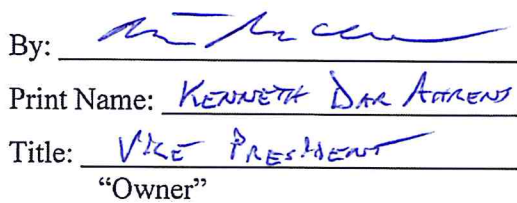 By:
Print Name: Kenneth Dar Ahrens
Title: Vice President
"Owner"